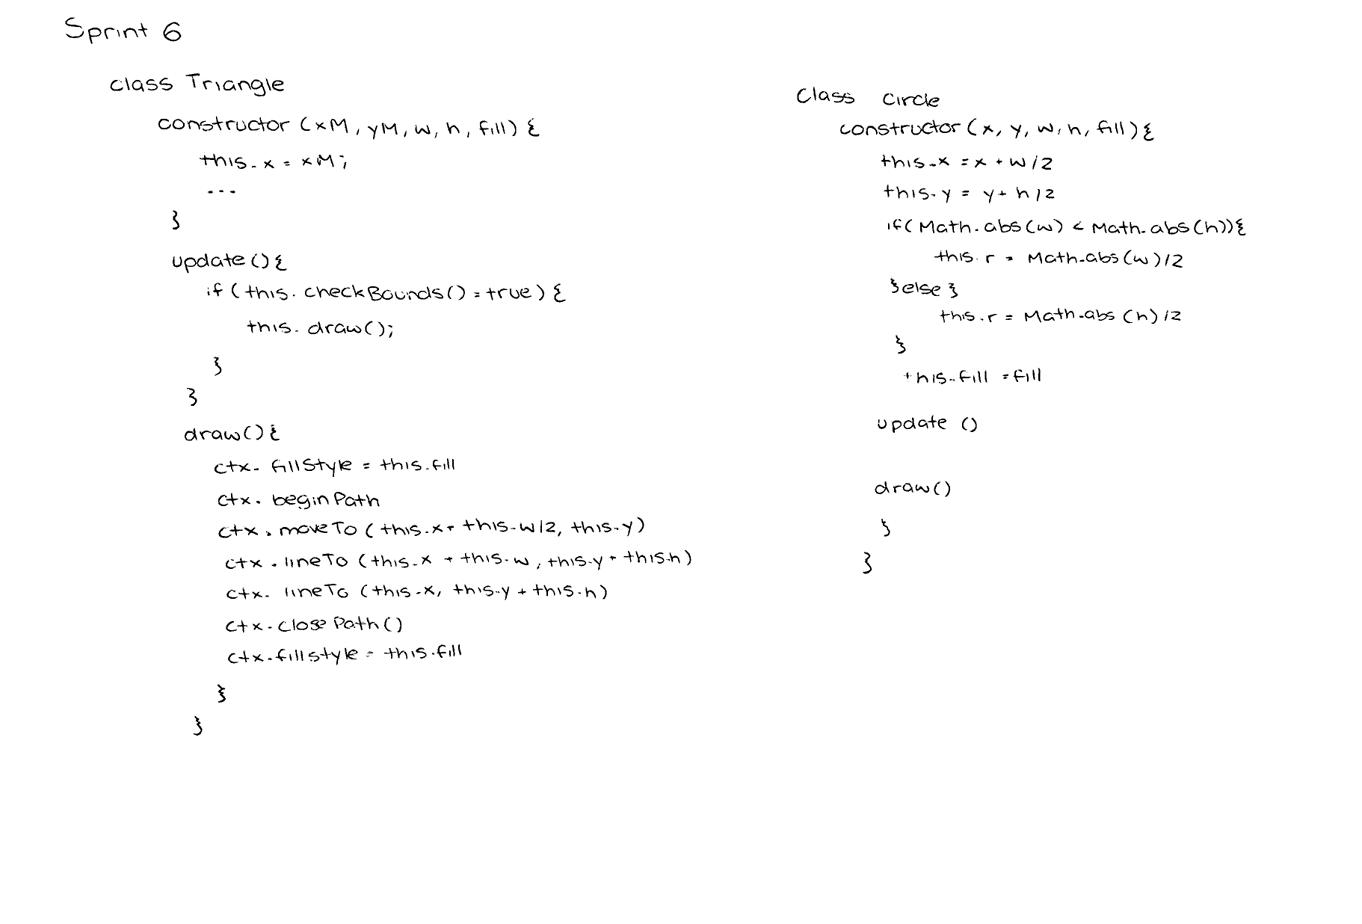 Sprint 6
class Triangle
constructor (xM, yM, w, h, fill) {
this.x = xM;
...
}
update () {
if (this.checkBounds() = true) {
this.draw();
}
}
draw() {
ctx.fillStyle = this.fill
ctx.beginPath
ctx.moveTo (this.x + this.w/2, this.y)
ctx.lineTo (this.x + this.w, this.y + this.h)
ctx.lineTo (this.x, this.y + this.h)
ctx.closePath()
ctx.fillstyle = this.fill
}
}
Class Circle
constructor (x, y, w, h, fill) {
this.x = x + w/2
this.y = y + h/2
if( Math.abs(w) < Math.abs(h)) {
this.r = Math.abs(w)/2
} else }
this.r = Math.abs(h)/2
}
this.fill = fill
update ()
draw()
}
}